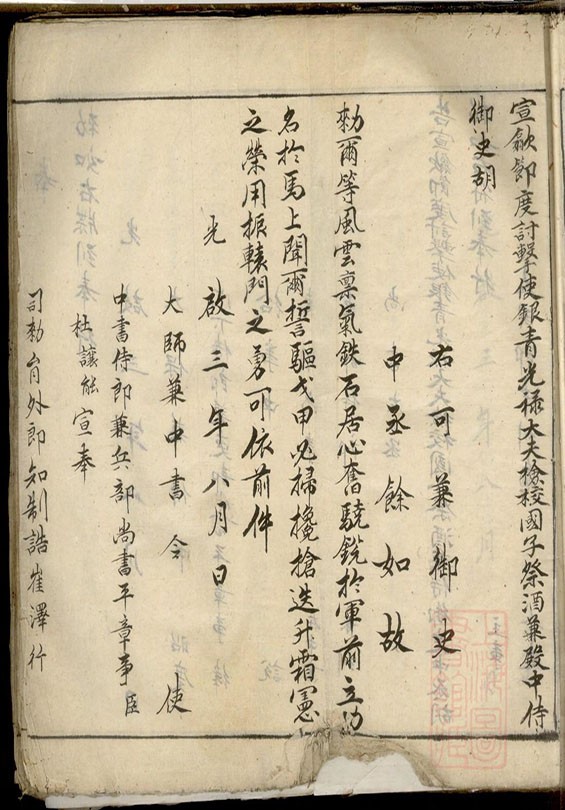 宣歙節度討擊使銀青光禄大夫檢校國子祭酒兼殿中侍
御史胡
右可兼御史
中丞餘如故
勑爾等風雲稟氣鉄石居心奮驍銳於軍前立功
名於馬上聞爾誓驅戈甲必掃攙搶迭升霜憲
之榮用振轅門之勇可依前件
光啟三年八月日
大師兼中書令 使
中書侍郎兼兵部尚書平章事臣
杜讓能宣奉
司勑員外郎知制誥崔澤行